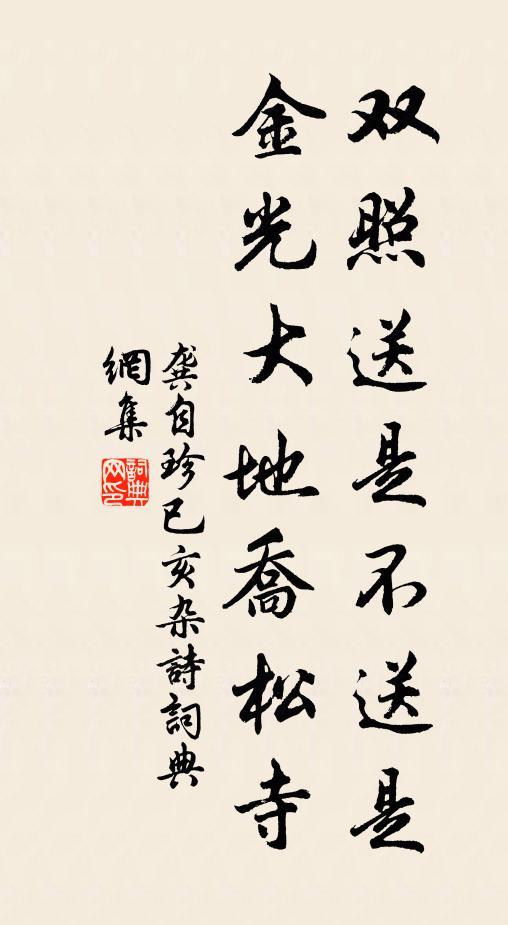 双照送是不送是
金光大地喬松寺
龚自珍已亥杂詩詞典
網集
詞典
网印